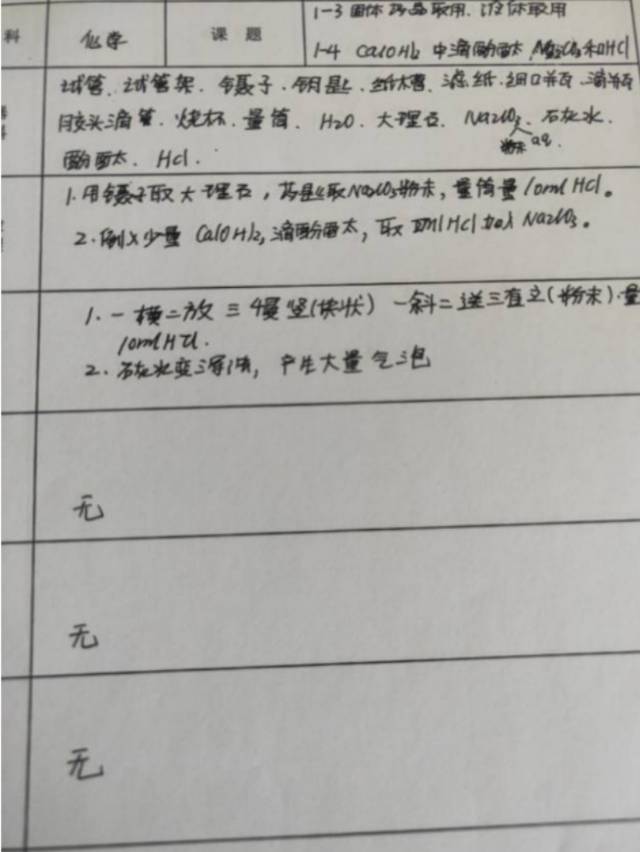 科 化学 课题 1-3 固体药品取用.液体取用
1-4 Ca(OH)2 中滴酚酞 Na2CO3和HCl
试管.试管架.镊子.钥匙.纸槽.滤纸.细口瓶.滴瓶
胶头滴管.烧杯.量筒.H2O.大理石.Na2CO3.石灰水.
粉末 aq.
酚酞.HCl.
1.用镊子取大理石,药匙取Na2CO3粉末,量筒量10ml HCl。
2.倒入少量Ca(OH)2,滴酚酞,取 HCl加入Na2CO3。
1.一横二放三慢竖(块状)一斜二送三直立(粉末).量
10ml HCl.
2.石灰水变 ,产生大量气泡
无
无
无